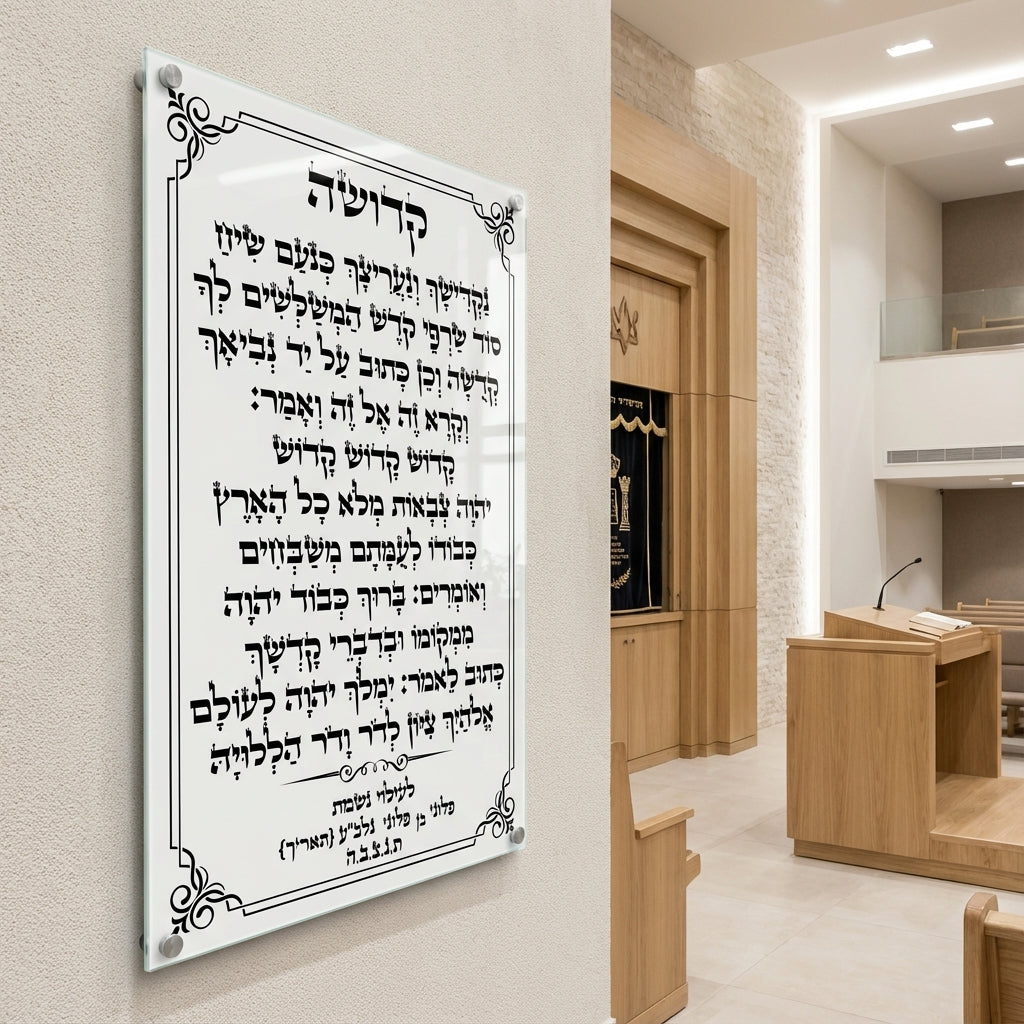 קדושה
נַקְדִישָׁךְ וְנַעֲרִיצָךְ כְּנֹעַם שִׂיחַ
סוֹד שַׂרְפֵי קֹדֶשׁ הַמְשַׁלְּשִׁים לְךָ
קְדֻשָּׁה וְכֵן כָּתוּב עַל יַד נְבִיאָךְ
וְקָרָא זֶה אֶל זֶה וְאָמַר:
קָדוֹשׁ קָדוֹשׁ קָדוֹשׁ
יהוה צְבָאוֹת מְלֹא כָל הָאָרֶץ
כְּבוֹדוֹ לְעֻמָּתָם מְשַׁבְּחִים
וְאוֹמְרִים: בָּרוּךְ כְּבוֹד יהוה
מִמְּקוֹמוֹ וּבְדִבְרֵי קָדְשָׁךְ
כָּתוּב לֵאמֹר: יִמְלֹךְ יהוה לְעוֹלָם
אֱלֹהַיִךְ צִיּוֹן לְדֹר וָדֹר הַלְלוּיָהּ
לעילוי נשמת
פלוני בן פלוני נלב"ע {תאריך}
ת.נ.צ.ב.ה